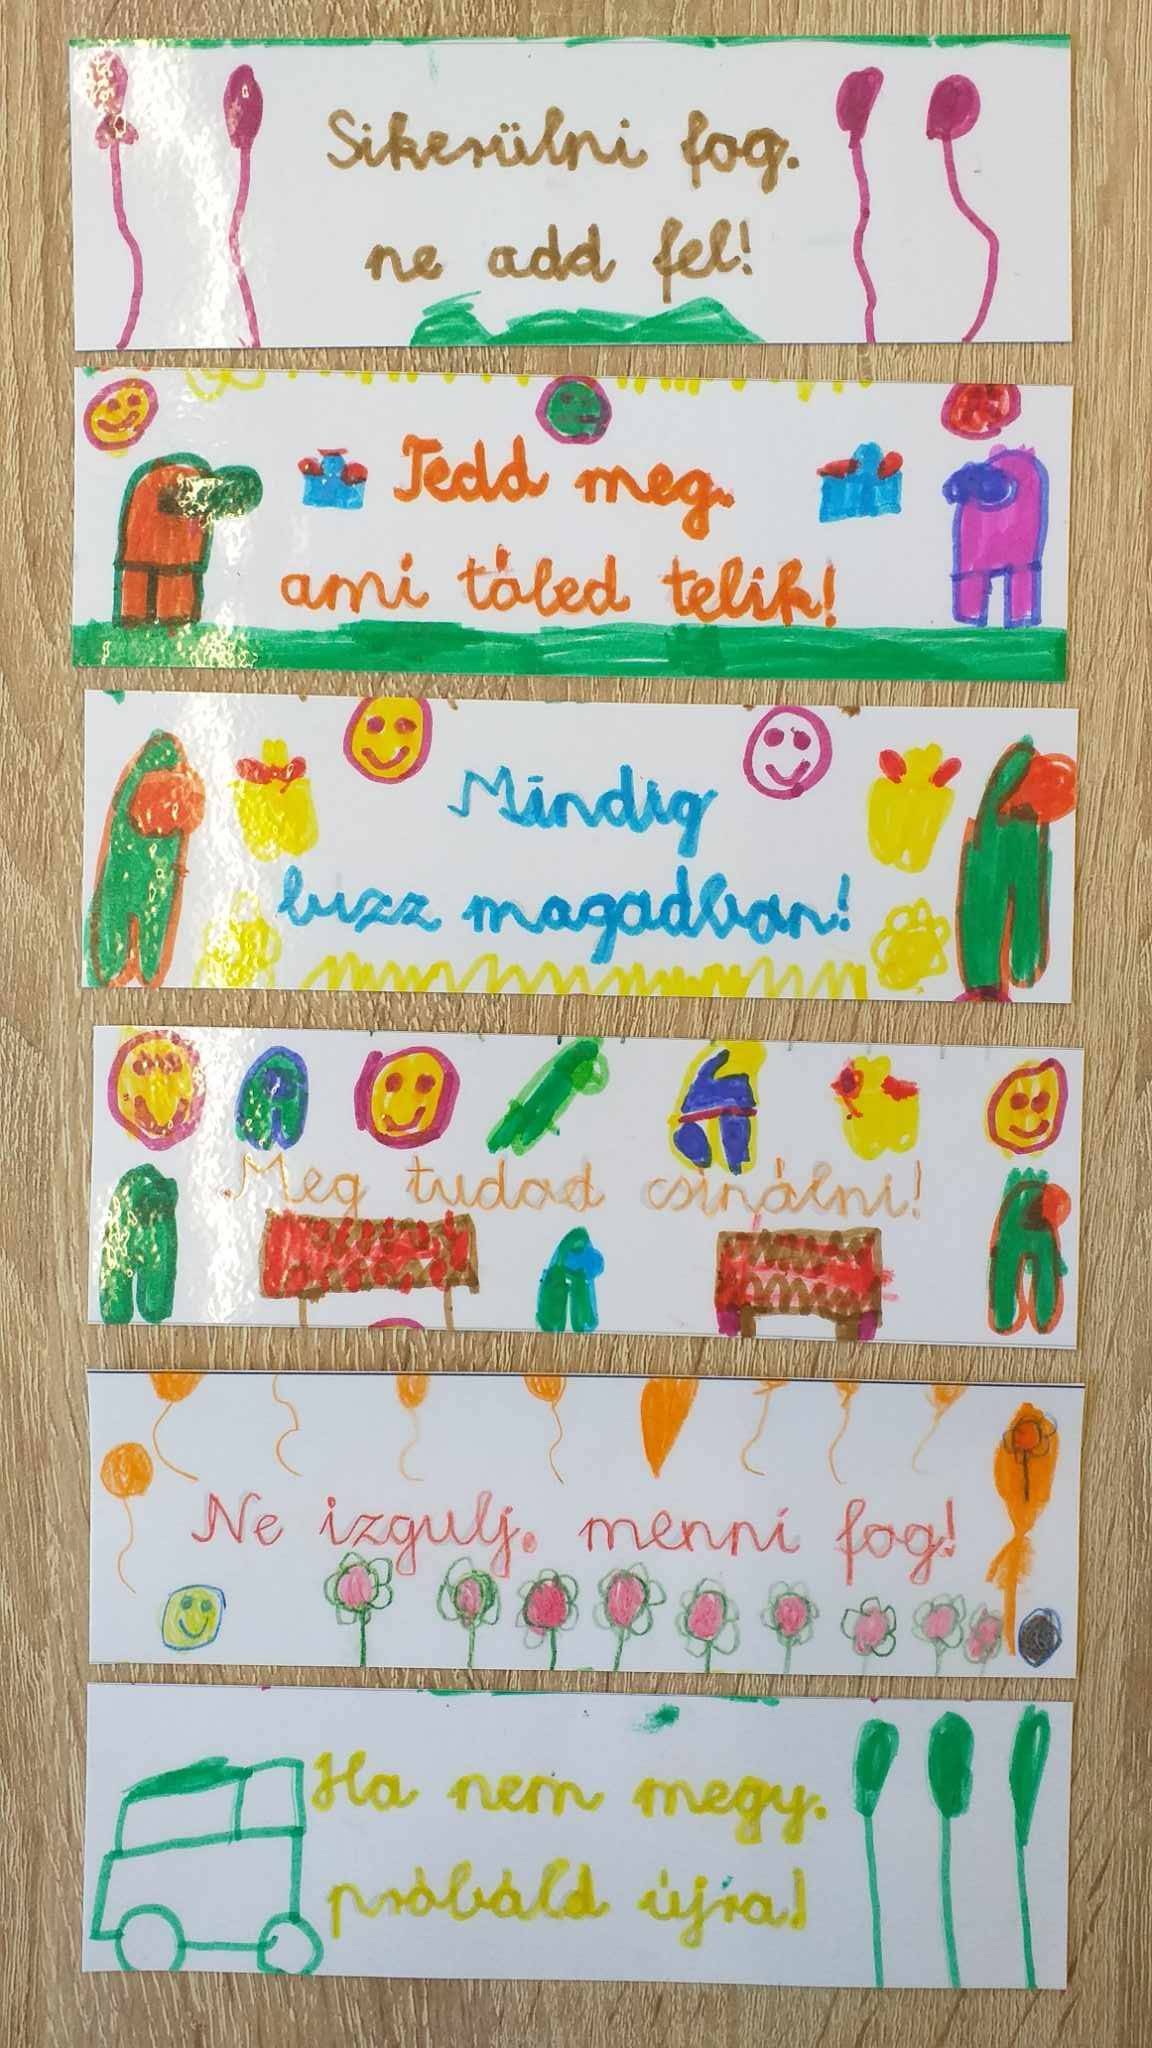 Sikerülni fog.
ne add fel!
Tedd meg.
ami tőled telik!
Mindig
bízz magadban!
Meg tudod csinálni!
Ne izgulj. menni fog!
Ha nem megy.
próbáld újra!